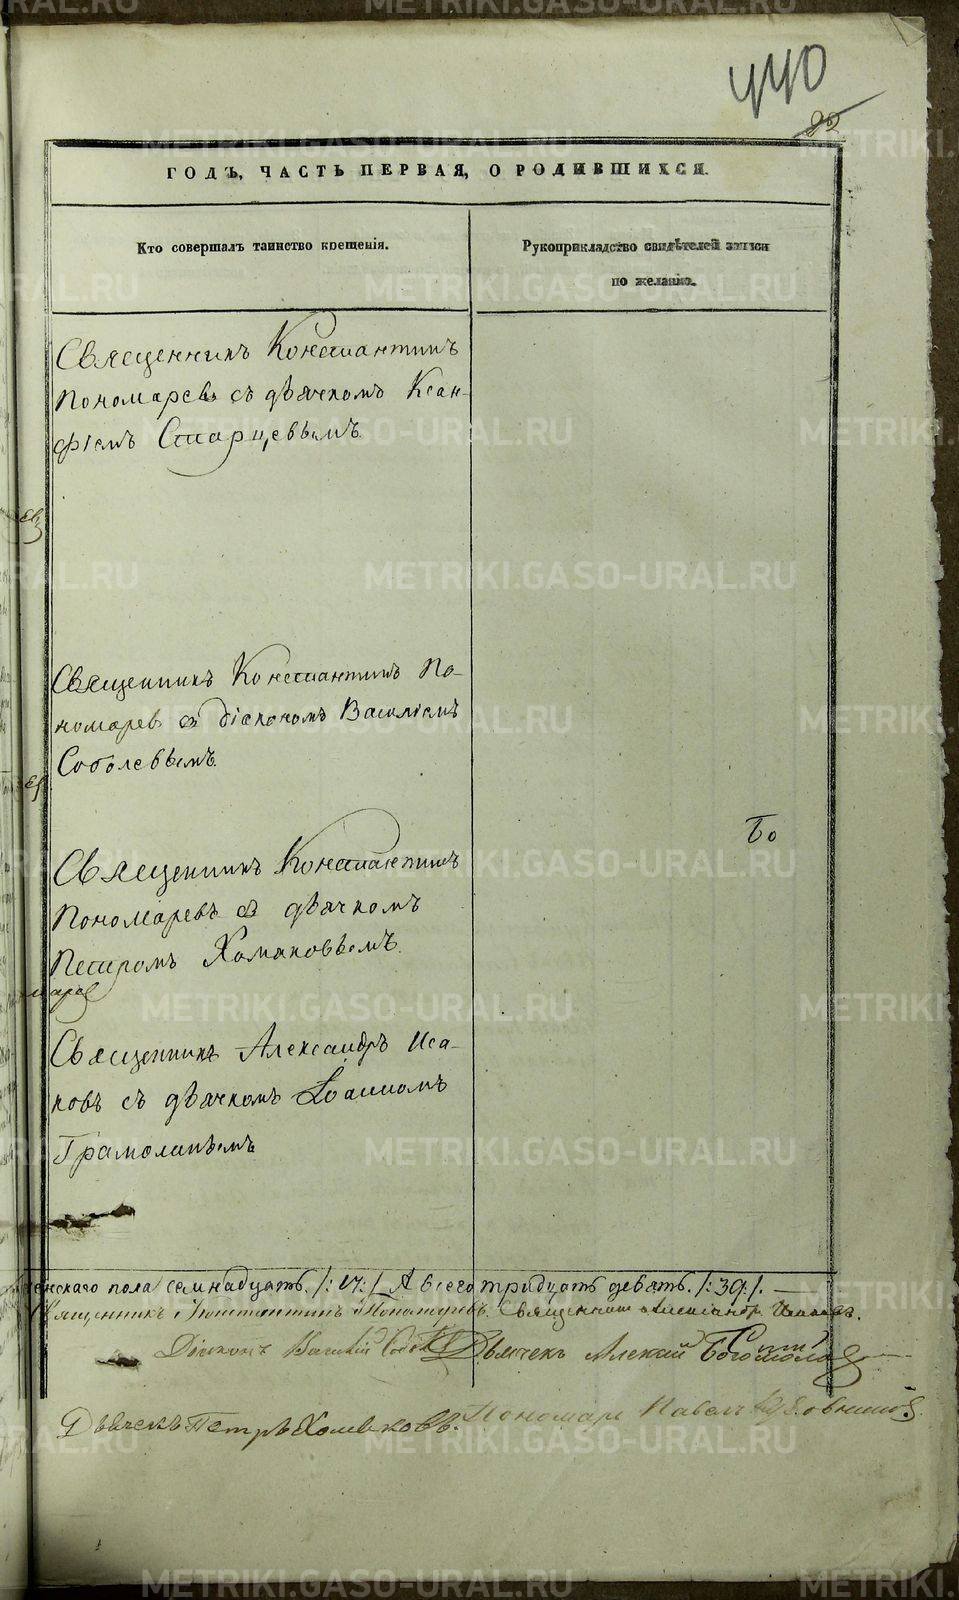 440
25
ГОДЪ, ЧАСТЬ ПЕРВАЯ, О РОДИВШИХСЯ.
Кто совершалъ таинство крещенія.
Рукоприкладство свидѣтелей записи
по желанію.
Священникъ Константинъ
Пономаревъ съ дьячкомъ Ксан-
фіемъ Старцевымъ.
Священникъ Константинъ По-
номаревъ съ діакономъ Василіемъ
Соболевымъ.
Бо
Священникъ Константинъ
Пономаревъ съ дьячкомъ
Петромъ Хомяковымъ.
Священникъ Александръ Иса-
ковъ съ дьячкомъ Іоанномъ
Грамолинымъ
женскаго пола семнадцать /:17:/ А всего тридцать девять. /:39:/.
Священникъ Константинъ Пономаревъ. Священникъ Александръ Исаковъ.
Діаконъ Василій Дьячекъ Алексій Богомоловъ
Дьячекъ Петръ Хомяковъ. Пономарь Павелъ
METRIKI.GASO-URAL.RU